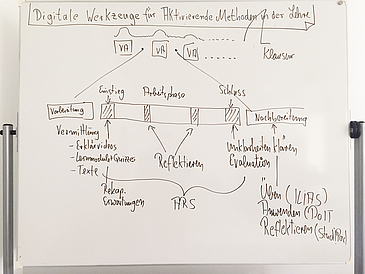 Digitale Werkzeuge für Aktivierende Methoden in der Lehre
VA
VA
VA
Klausur
Einstieg
Arbeitsphase
Schluss
Vorbereitung
Nachbereitung
Vermittlung
- Erklärvideos
- Lernmodule
- Texte
Reflektieren
Unklarheiten klären
Evaluation
Rekap.
Erwartungen
ARS
Üben (ILIAS)
Anwenden (DoIT
Reflektieren